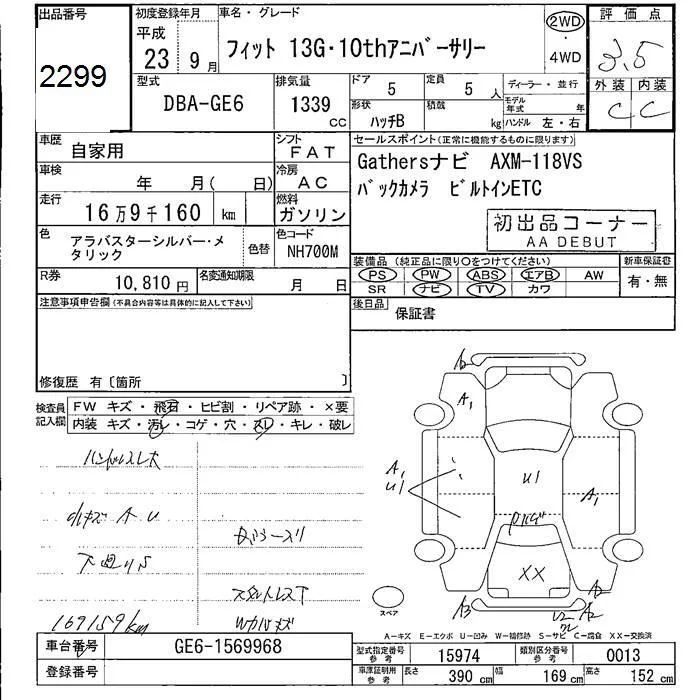 出品番号
2299
初度登録年月
平成
23 9月
車名・グレード
フィット 13G・10thアニバーサリー
2WD
・
4WD
評価点
3.5
外装 内装
C C
型式
DBA-GE6
排気量
1339 CC
ドア 5
定員 5 人
形状 ハッチB
積載 kg
ディーラー・並行
モデル年式 年
ハンドル 左・右
車歴
自家用
シフト
FAT
車検
年 月( 日)
冷房
AC
走行
16万9千160 km
燃料
ガソリン
色
アラバスターシルバー・メタリック
色替
色コード
NH700M
R券
10,810円
名変通知期限
月 日
セールスポイント(正常に機能するものに限ります)
Gathersナビ AXM-118VS
バックカメラ ビルトインETC
初出品コーナー
AA DEBUT
装備品 (純正品に限り○をつけてください)
PS PW ABS エアB AW
SR ナビ TV カワ
新車保証書
有・無
後日品
保証書
注意事項申告欄(不具合内容等は具体的に記入して下さい)
修復歴 有〔箇所 〕
検査員記入欄
FW キズ・飛石・ヒビ割・リペア跡・×要
内装 キズ・汚レ・コゲ・穴・スレ・キレ・破レ
ハンドルスレ大
小キズ A U
下廻りS
169159km
A2
A1
A1
U1
U1
A1
XX
A3
A2
A2
スペア
A-キズ E-エクボ U-凹み W-補修跡 S-サビ C-腐食 XX-交換済
車台番号
GE6-1569968
登録番号
型式指定番号 参考
15974
類別区分番号 参考
0013
車庫証明用 参考
長さ 390 cm
幅 169 cm
高さ 152 cm